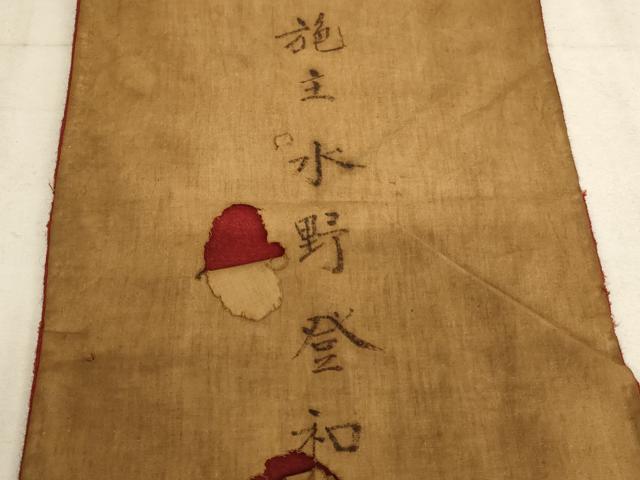 施主水野登和